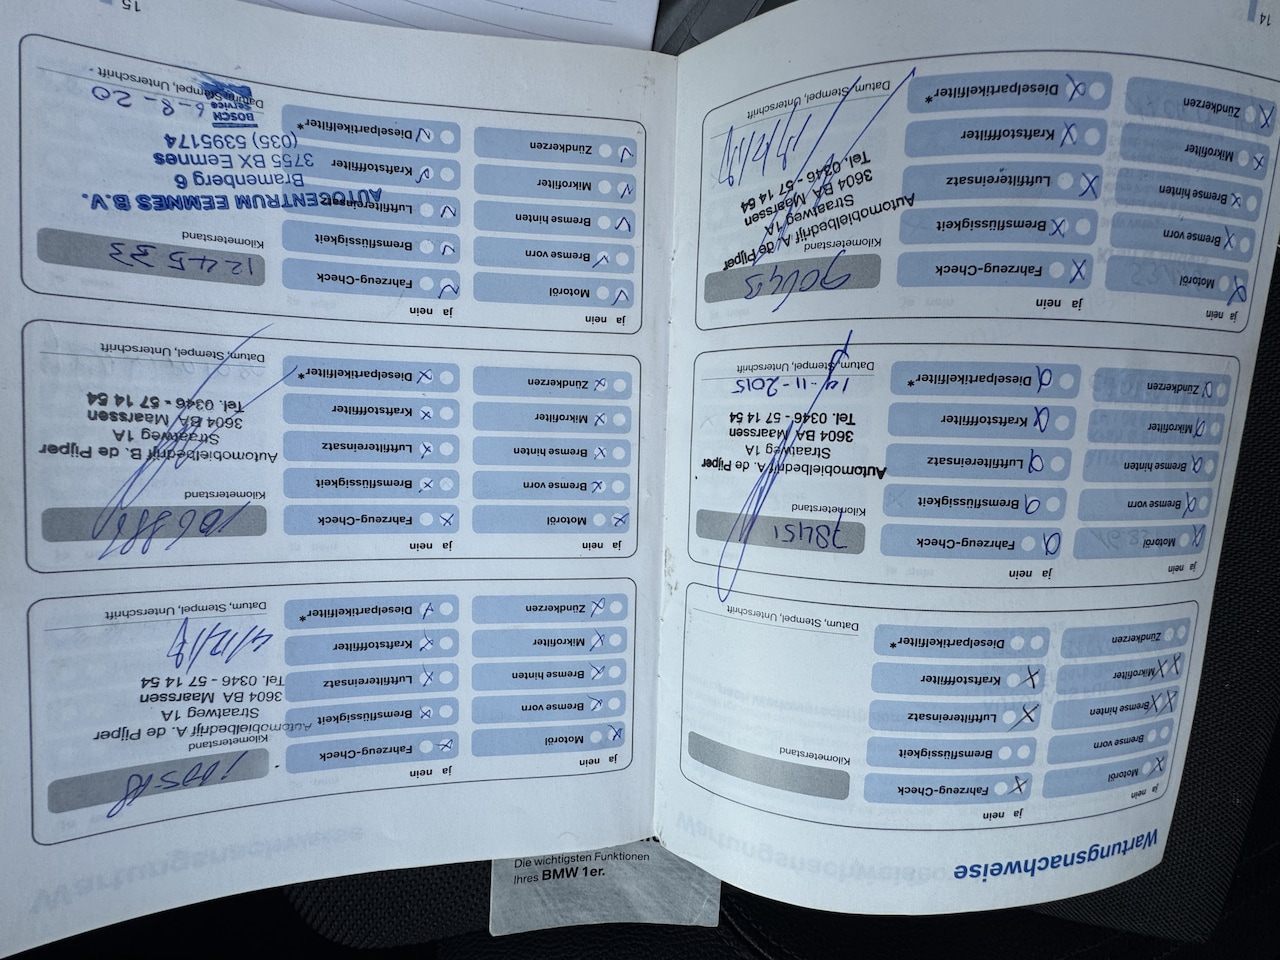 14
Wartungsnachweise
ja nein
ja nein
Motoröl
Fahrzeug-Check
Kilometerstand
Bremse vorn
Bremsflüssigkeit
Bremse hinten
Luftfiltereinsatz
Mikrofilter
Kraftstofffilter
Zündkerzen
Dieselpartikelfilter*
Datum, Stempel, Unterschrift
ja nein
ja nein
Motoröl
Fahrzeug-Check
78451
Kilometerstand
Bremse vorn
Bremsflüssigkeit
Bremse hinten
Luftfiltereinsatz
Mikrofilter
Kraftstofffilter
Zündkerzen
Dieselpartikelfilter*
Automobielbedrijf A. de Pijper
Straatweg 1A
3604 BA Maarssen
Tel. 0346 - 57 14 54
19-11-2015
Datum, Stempel, Unterschrift
ja nein
ja nein
Motoröl
Fahrzeug-Check
Kilometerstand
Bremse vorn
Bremsflüssigkeit
Bremse hinten
Luftfiltereinsatz
Mikrofilter
Kraftstofffilter
Zündkerzen
Dieselpartikelfilter*
Automobielbedrijf A. de Pijper
Straatweg 1A
3604 BA Maarssen
Tel. 0346 - 57 14 54
Datum, Stempel, Unterschrift
15
ja nein
ja nein
Motoröl
Fahrzeug-Check
Kilometerstand
Bremse vorn
Bremsflüssigkeit
Bremse hinten
Luftfiltereinsatz
Mikrofilter
Kraftstofffilter
Zündkerzen
Dieselpartikelfilter*
Automobielbedrijf A. de Pijper
Straatweg 1A
3604 BA Maarssen
Tel. 0346 - 57 14 54
Datum, Stempel, Unterschrift
ja nein
ja nein
Motoröl
Fahrzeug-Check
Kilometerstand
Bremse vorn
Bremsflüssigkeit
Bremse hinten
Luftfiltereinsatz
Mikrofilter
Kraftstofffilter
Zündkerzen
Dieselpartikelfilter*
Automobielbedrijf B. de Pijper
Straatweg 1A
3604 BA Maarssen
Tel. 0346 - 57 14 54
Datum, Stempel, Unterschrift
ja nein
ja nein
Motoröl
Fahrzeug-Check
124533
Kilometerstand
Bremse vorn
Bremsflüssigkeit
Bremse hinten
Luftfiltereinsatz
Mikrofilter
Kraftstofffilter
Zündkerzen
Dieselpartikelfilter*
AUTOCENTRUM EEMNES B.V.
Bramenberg 6
3755 BX Eemnes
(035) 5395174
BOSCH
Service
6-8-20
Datum, Stempel, Unterschrift
Die wichtigsten Funktionen
Ihres BMW 1er.